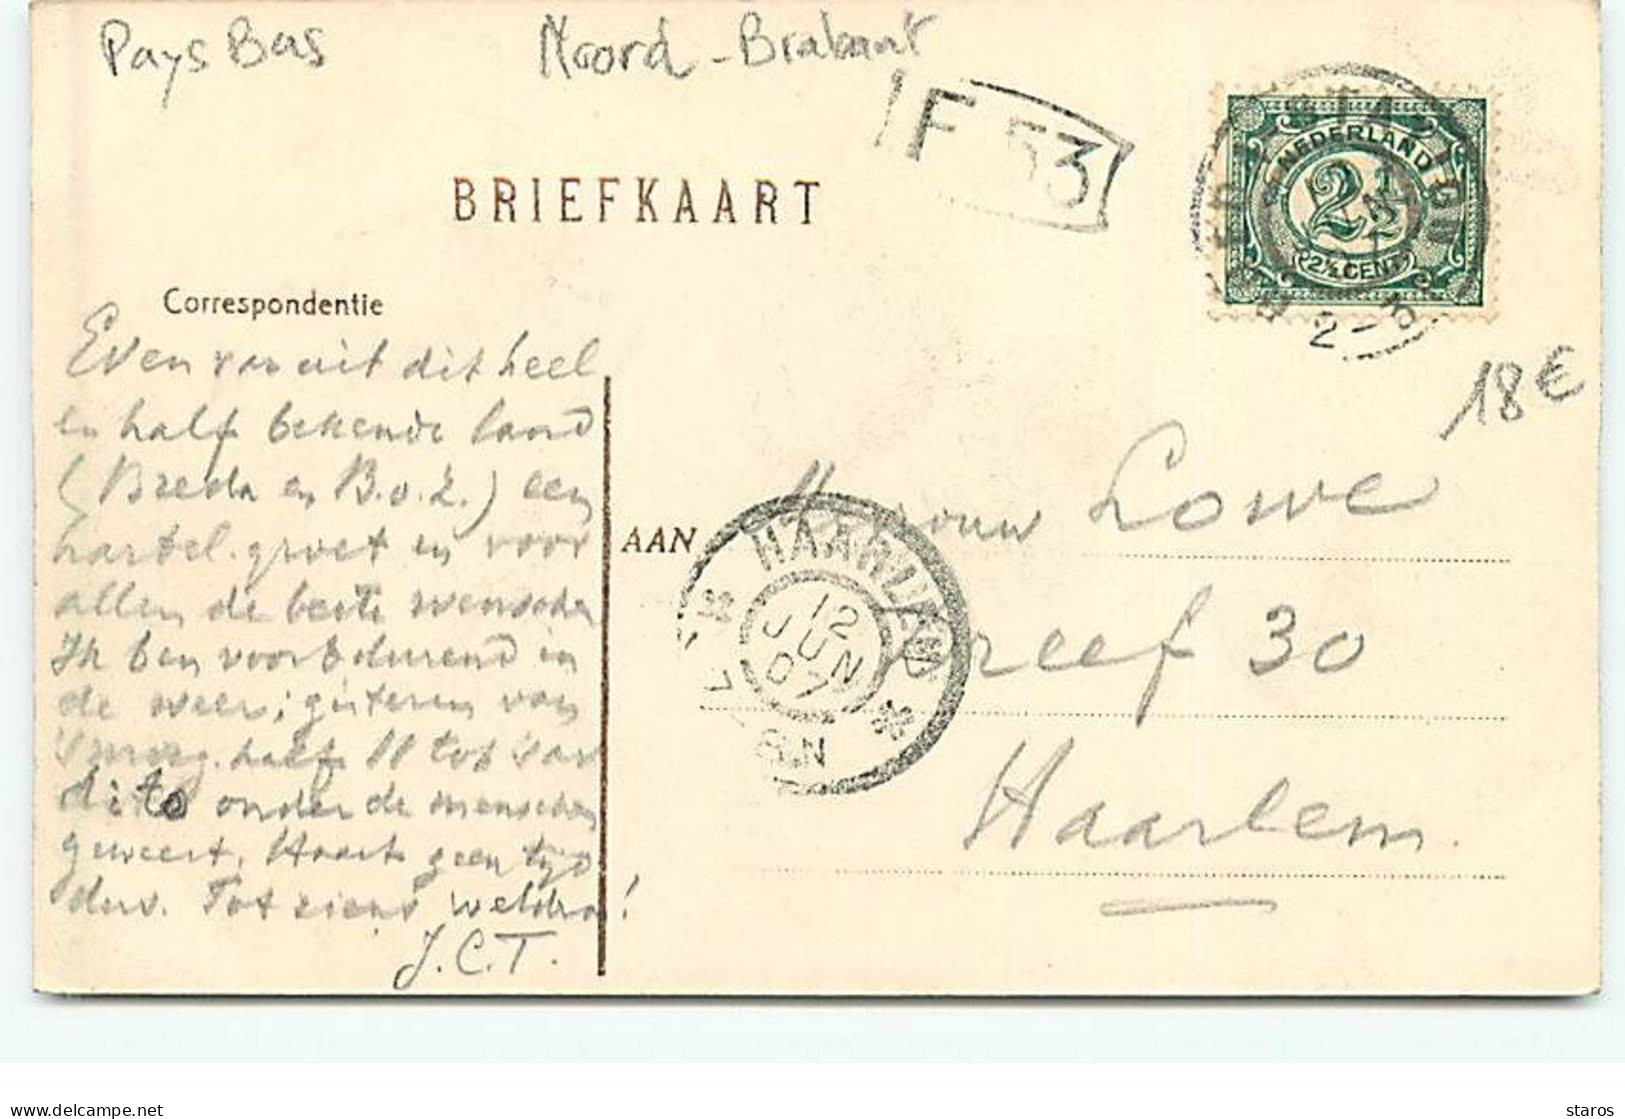 Pays Bas
Noord-Brabant
F 53
NEDERLAND
2½
2½ CENT
2-3
BRIEFKAART
18€
Correspondentie
Even van uit dit heel
en half bekende land
(Breda en B.o.Z.) een
hartel. groet en voor
allen de beste wenschen
Ik ben voortdurend in
de weer; gisteren van
's morg. half 11 tot
dito onder de menschen
geweest. Haast geen tijd
dus. Tot ziens weldra!
J.C.T.
AAN
Mevrouw Lowe
Dreef 30
Haarlem.
HAARLEM
12
JUN
07
staros
www.delcampe.net